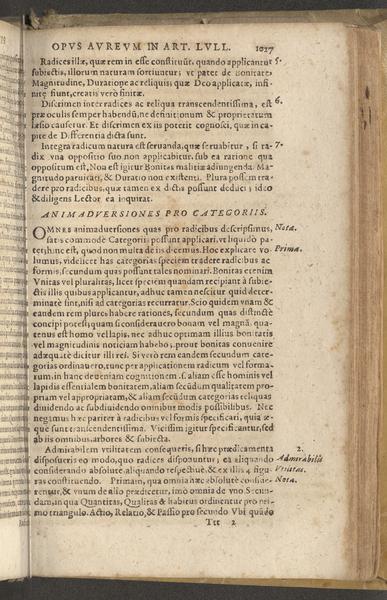 OPVS AVREVM IN ART. LVLL. 1027
Radices illæ, quæ rem in esse constituũt, quando applicantur 5.
subiectis, illorum naturam sortiuntur; vt patet de Bonitate,
Magnitudine, Duratione ac reliquis; quæ Deo applicatæ, infi-
nitę fiunt, creatis verò finitæ.
Discrimen inter radices ac reliqua transcendentissima, est 6.
præ oculis semper habendũ, ne definitionum & proprietatum
læsio causetur. Et discrimen ex iis poterit cognosci, quæ in ca-
pite de Differentia dicta sunt.
Integra radicum natura est seruanda, quæ seruabitur, si ra- 7.
dix vna opposito suo non applicabitur, sub ea ratione qua
oppositum est. Non est igitur Bonitas malitiæ adiungenda. Ma-
gnitudo paruitati, & Duratio non existenti. Plura possem tra-
dere pro radicibus, quæ tamen ex dictis possunt deduci; ideo
& diligens Lector ea inquirat.
ANIMADVERSIONES PRO CATEGORIIS.
OMNES animaduersiones quas pro radicibus descripsimus, Nota.
satis commode Categoriis possunt applicari, vt liquido pa-
tet; hinc est, quod non multa de iis dicemus. Hoc explicare vo- Prima.
lumus, videlicet has categorias speciem tradere radicibus ac
formis, secundum quas possunt tales nominari. Bonitas etenim
Vnitas vel pluralitas, licet speciem quandam recipiant à subie-
ctis illis quibus applicantur, adhuc tamen nescitur quid deter-
minatè sint, nisi ad categorias recurratur. Scio quidem vnam &
eandem rem plures habere rationes, secundum quas distinctè
concipi potest; quam si considerauero bonam vel magnã, qua-
tenus est homo vel lapis, nec adhuc optimam illius bonitatis
vel magnitudinis noticiam habebo, prout bonitas conuenire
adæquatè dicitur illi rei. Si verò rem eandem secundum cate-
gorias ordinauero, tunc per applicationem radicum vel forma-
rum, in hanc deueniam cognitionem, scilicet aliam esse hominis vel
lapidis essentialem bonitatem, aliam secũdum qualitatem pro-
priam vel appropriatam, & aliam secũdum categorias reliquas
diuidendo ac subdiuidendo omnibus modis possibilibus. Nec
negamus hæc pariter à radicibus vel formis specificari, quia æ-
que sunt transcendentissima. Vicissim igitur specificantur, sed
ab iis omnibus, arbores & subiecta.
Admirabilem vtilitatem consequeris, si hæc prædicamenta 2.
disposueris eo modo, quo radices disponuntur; ea aliquando Admirabilis
considerando absolutè, aliquando respectiuè, & ex illis 4. figu- Vtilitas.
ras constituendo. Primum, quia omnia hæc absolutè conside- Nota.
rentur, & vnum de alio prædicetur, imò omnia de vno. Secun-
dam, in qua Quantitas, Qualitas & habitus ordinentur pro pri-
mo triangulo. Actio, Relatio, & Passio pro secundo. Vbi quãdo
Ttt 2